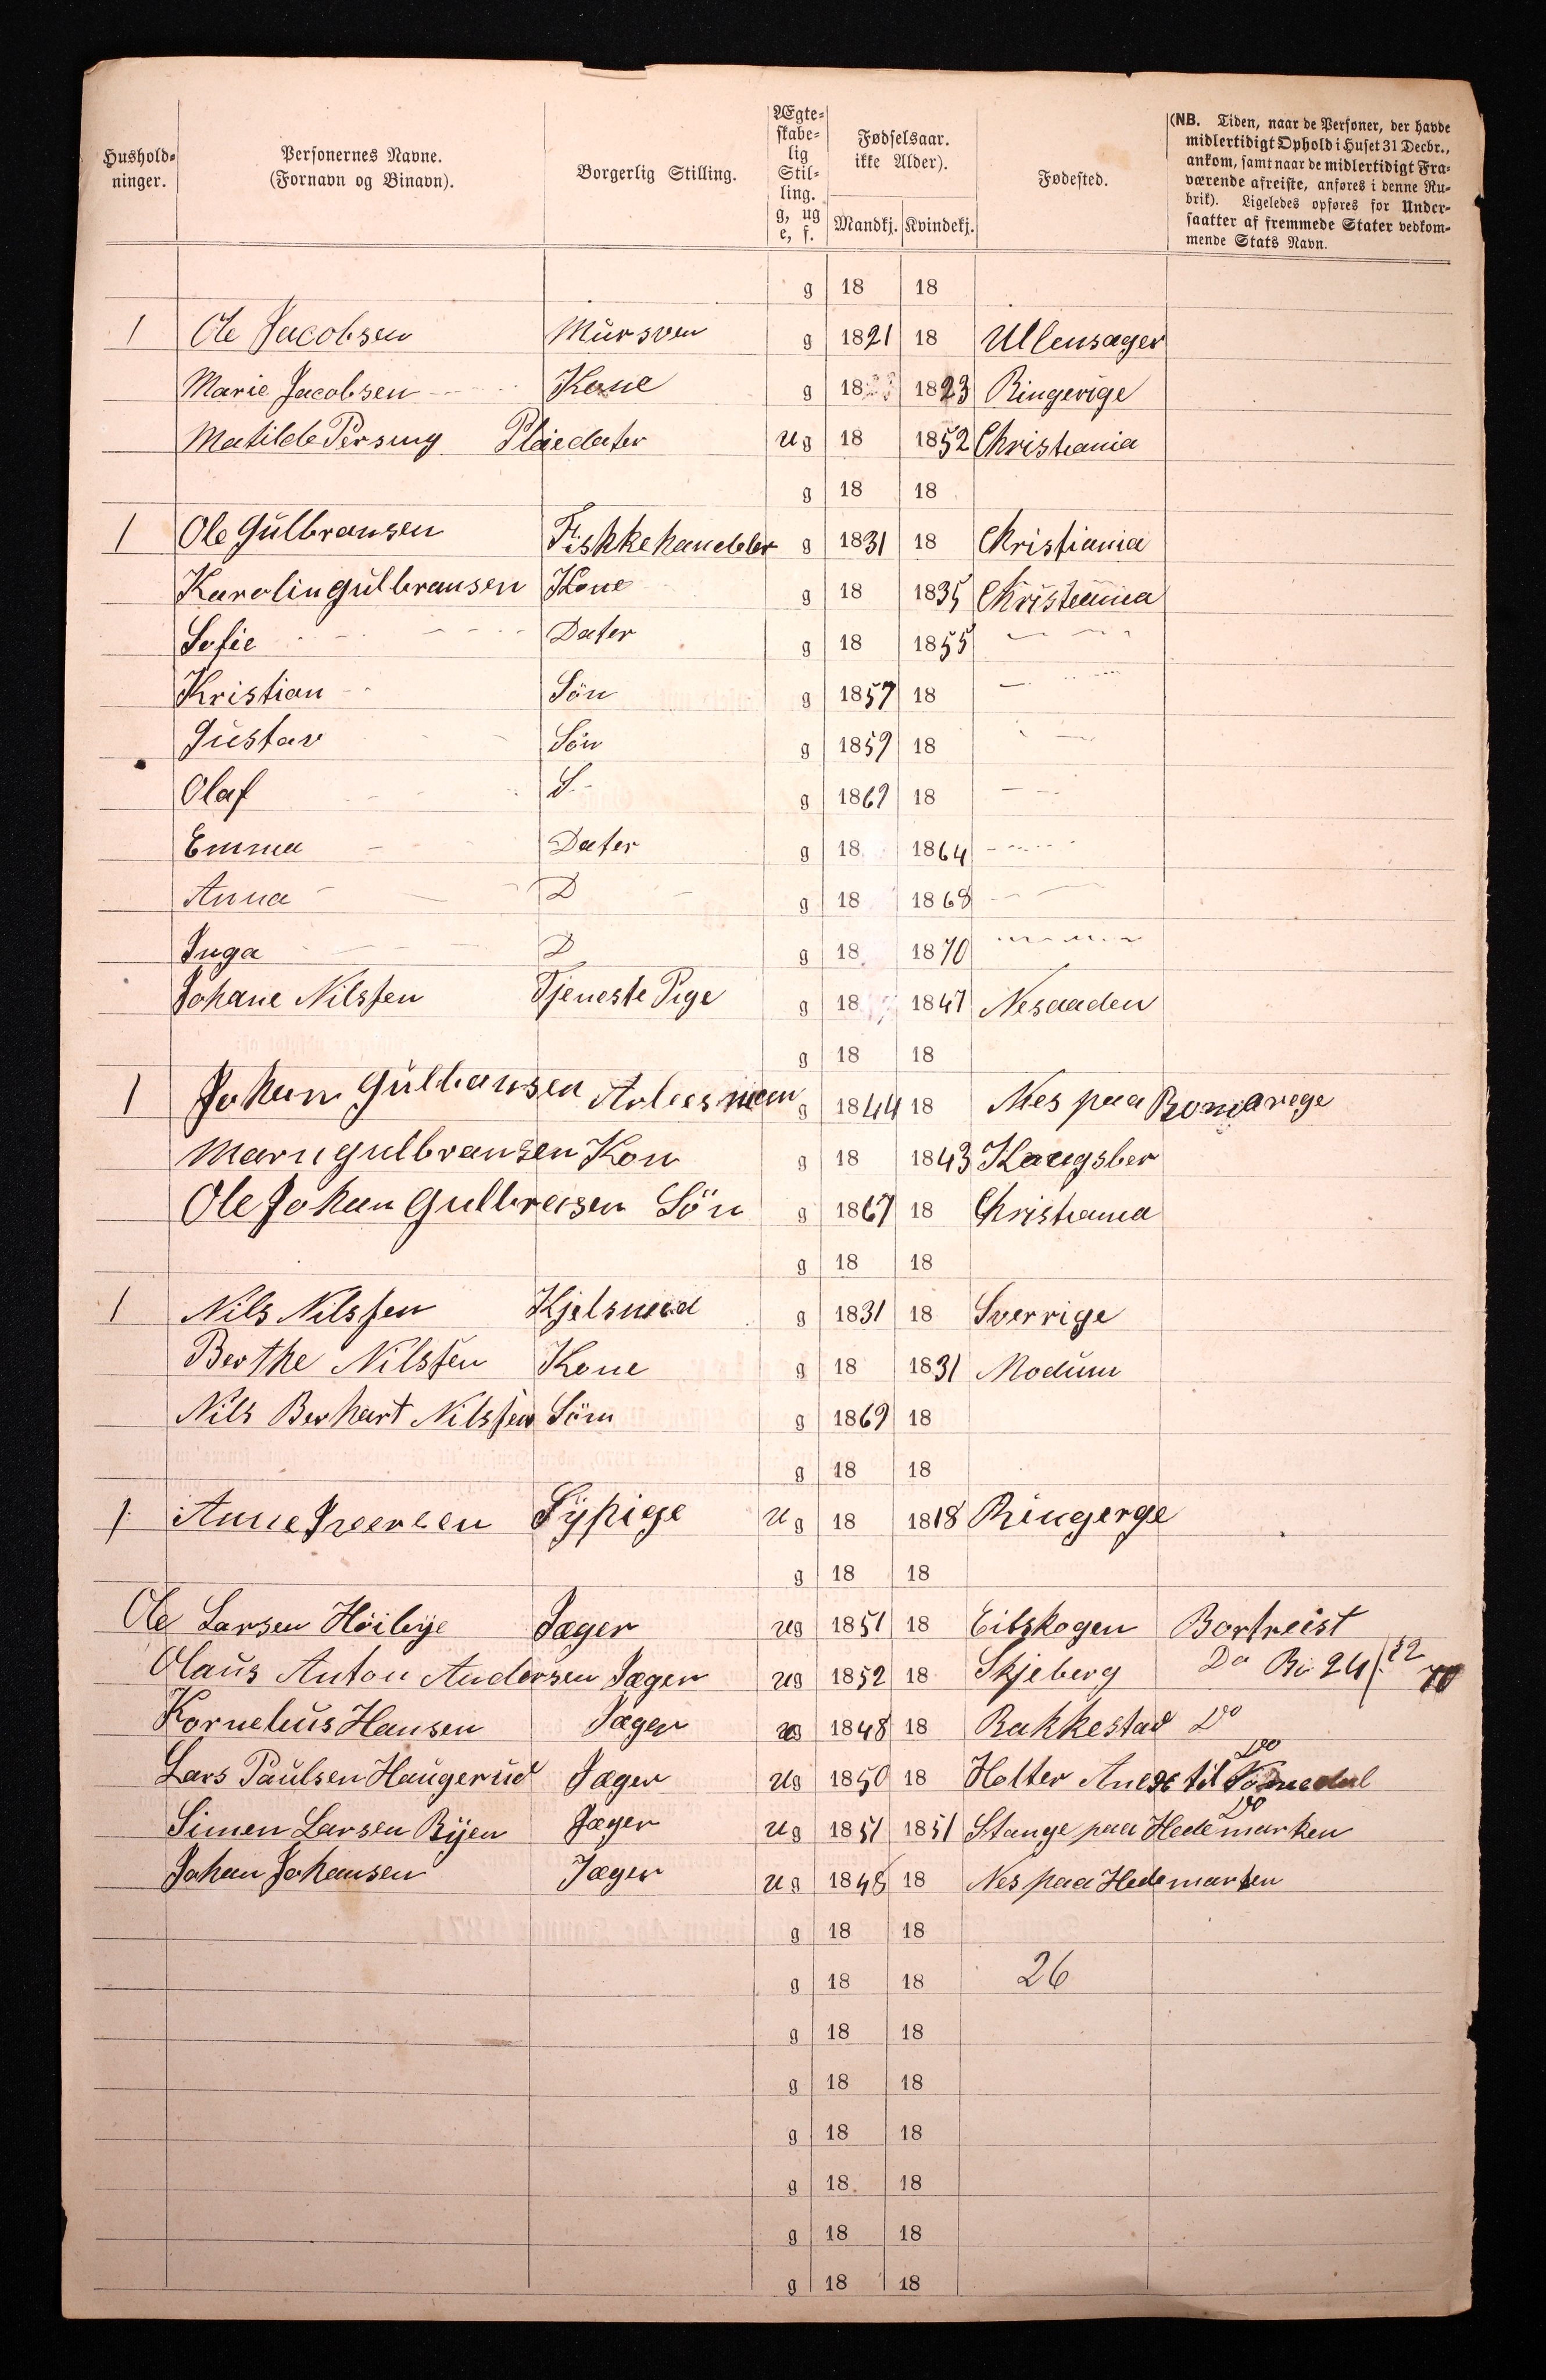 Hushold-
ninger.
Personernes Navne.
(Fornavn og Binavn).
Borgerlig Stilling.
Ægte-
skabe-
lig
Stil-
ling.
g, ug
e, f.
Fødselsaar.
ikke Alder).
Mandkj. Kvindekj.
Fødested.
(NB. Tiden, naar de Personer, der havde
midlertidigt Ophold i Huset 31 Decbr.,
ankom, samt naar de midlertidigt Fra-
værende afreiste, anføres i denne Ru-
brik). Ligeledes opføres for Under-
saatter af fremmede Stater vedkom-
mende Stats Navn.
g 18 18
1 Ole Jacobsen Mursven g 1821 18 Ullensager
Marie Jacobsen Kone g 18 1823 Ringerige
Matilde Persung Pleiedater ug 18 1852 Christiania
g 18 18
1 Ole Gulbransen Fishkehandeler g 1831 18 Christiania
Karolin Gulbransen Kone g 18 1835 Christiania
Sofie Dater g 18 1855
Kristian Sön g 1857 18
Gustav Sön g 1859 18
Olaf S g 1869 18
Emma Dater g 18 1864
Anna D g 18 1868
Inga D g 18 1870
Johane Nilssen Tjeneste Pige g 18 1847 Nesodden
g 18 18
1 Johan Gulbransen g 1844 18 Nes paa Romarege
Marn Gulbransen Kon g 18 1843 Kaugsber
Ole Johan Gulbrasen Sön g 1867 18 Christiania
g 18 18
1 Nils Nilssen Kjelsmed g 1831 18 Sverrige
Berthe Nilssen Kone g 18 1831 Modum
Nils Berhart Nilssen Sön g 1869 18
g 18 18
1 Anne Iversen Sypige ug 18 1818 Ringerge
g 18 18
Ole Larsen Höibye Jæger ug 1851 18 Eidskogen Bortreist
Olaus Anton Andersen Jæger ug 1852 18 Skjeberg Do 24/12 70
Kornelius Hansen Jæger ug 1848 18 Rakkestad Do
Lars Paulsen Haugerud Jæger ug 1850 18 Holter til Do
Simen Larsen Ryen Jæger ug 1851 1851 Stange paa Hedemarken Do
Johan Johansen Jæger ug 1848 18 Nes paa Hedemarken
g 18 18
g 18 18 26
g 18 18
g 18 18
g 18 18
g 18 18
g 18 18
g 18 18